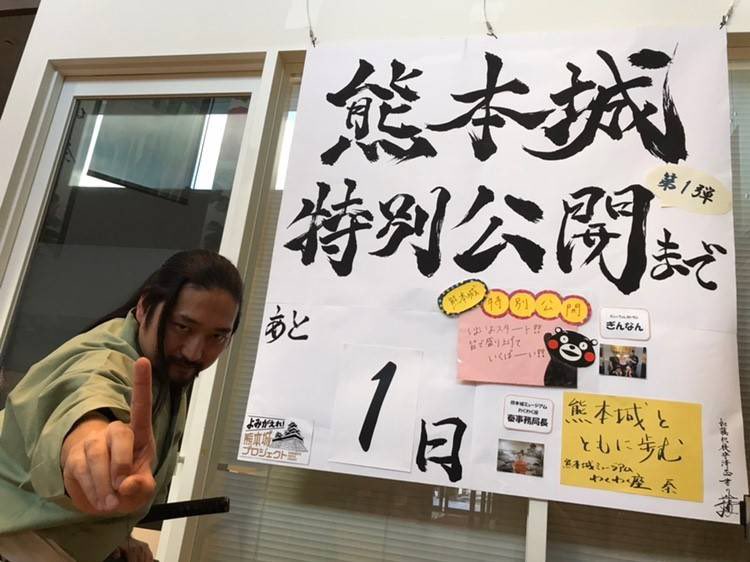 熊本城
第1弾
特別公開まで
あと
1日
熊本城 特別公開
いよいよスタート!!
皆で盛り上げて
いくばーい!!
ぎんなん
熊本城ミュージアム
わくわく座
秦事務局長
よみがえれ!
熊本城
プロジェクト
熊本城と
ともに歩む
熊本城ミュージアム
わくわく座 秦